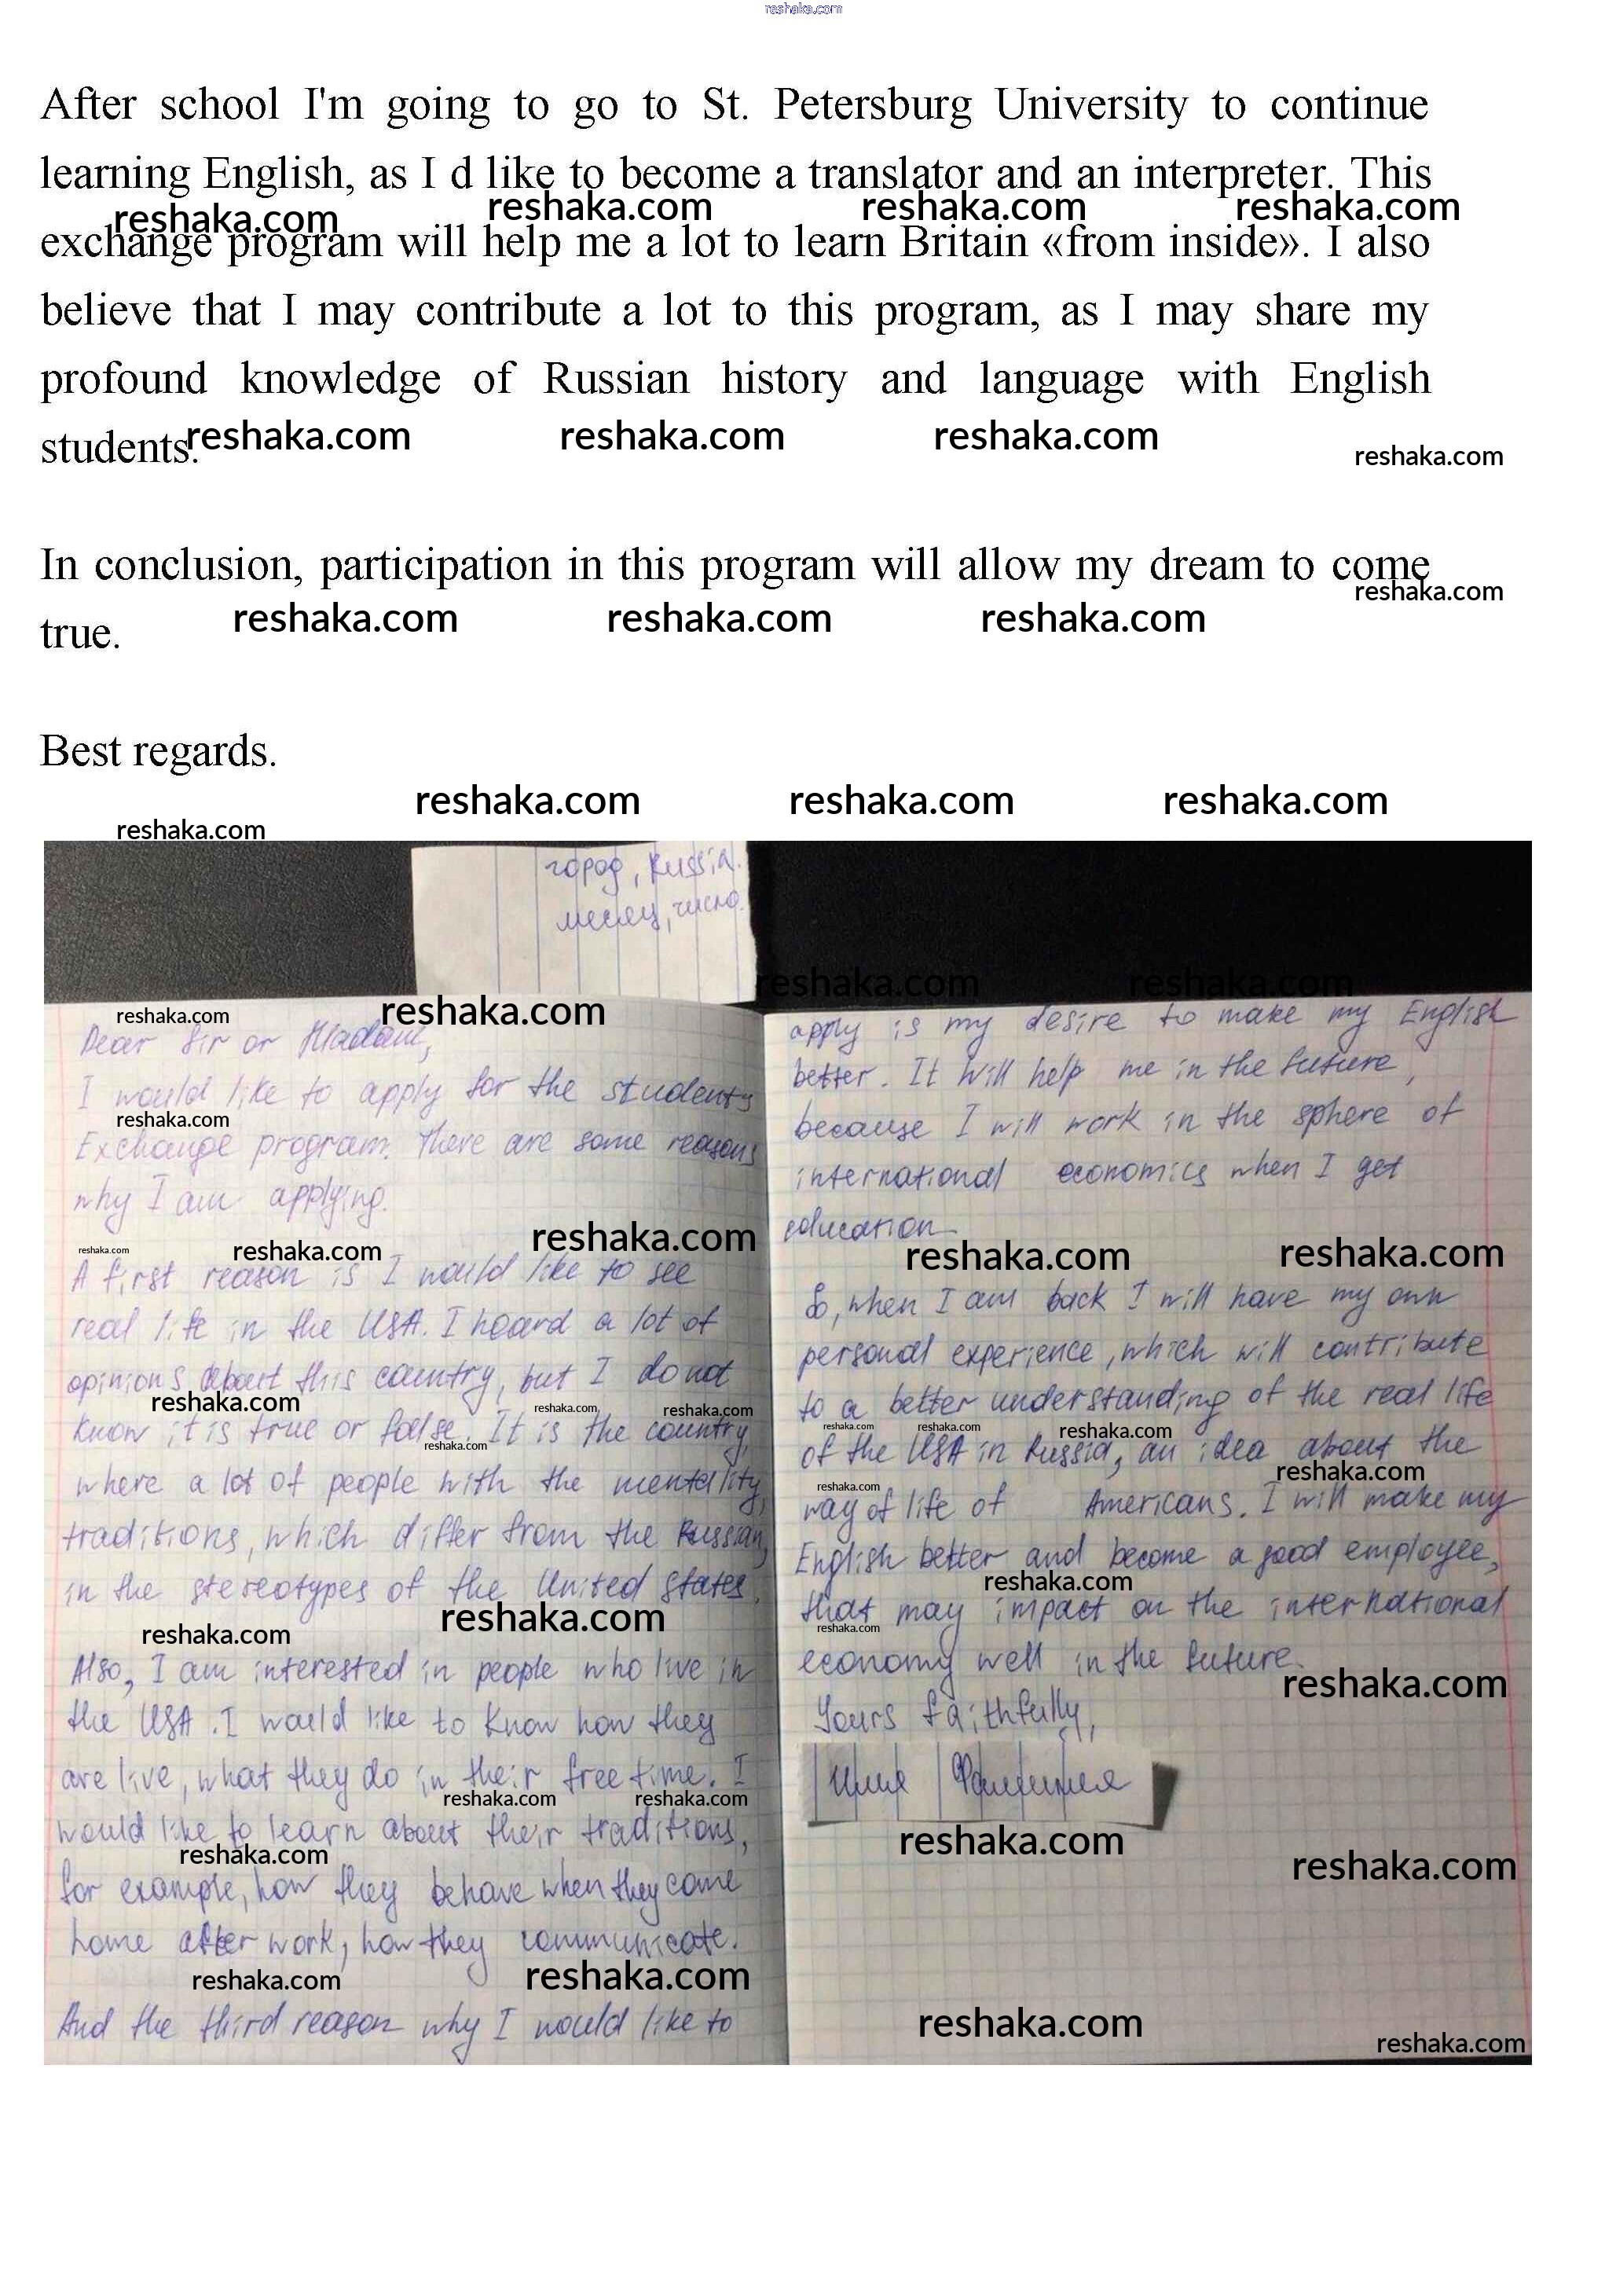 reshaka.com
After school I'm going to go to St. Petersburg University to continue
learning English, as I d like to become a translator and an interpreter. This
reshaka.com reshaka.com reshaka.com reshaka.com
exchange program will help me a lot to learn Britain «from inside». I also
believe that I may contribute a lot to this program, as I may share my
profound knowledge of Russian history and language with English
students.
reshaka.com reshaka.com reshaka.com reshaka.com
In conclusion, participation in this program will allow my dream to come
reshaka.com
true.
reshaka.com reshaka.com reshaka.com
Best regards.
reshaka.com reshaka.com reshaka.com
reshaka.com
город, Russia.
месец, число.
reshaka.com reshaka.com
reshaka.com reshaka.com
Dear Sir or Madam,
I would like to apply for the students
reshaka.com
Exchange program. There are some reasons
why I am applying.
reshaka.com reshaka.com reshaka.com
A first reason is I would like to see
real life in the USA. I heard a lot of
opinions about this country, but I do not
reshaka.com reshaka.com reshaka.com
know it is true or false. It is the country,
reshaka.com
where a lot of people with the mentality,
traditions, which differ from the Russian,
in the stereotypes of the United States.
reshaka.com reshaka.com
Also, I am interested in people who live in
the USA. I would like to know how they
are live, what they do in their free time. I
reshaka.com reshaka.com
would like to learn about their traditions,
reshaka.com
for example, how they behave when they come
home after work, how they communicate.
reshaka.com reshaka.com
And the third reason why I would like to
apply is my desire to make my English
better. It will help me in the future,
because I will work in the sphere of
international economics when I get
education.
reshaka.com reshaka.com
So, when I am back I will have my own
personal experience, which will contribute
to a better understanding of the real life
reshaka.com reshaka.com reshaka.com
of the USA in Russia, an idea about the
reshaka.com reshaka.com
way of life of Americans. I will make my
English better and become a good employee,
reshaka.com
that may impact on the international
reshaka.com
economy well in the future.
reshaka.com
Yours faithfully,
Имя Фамилия
reshaka.com
reshaka.com
reshaka.com
reshaka.com